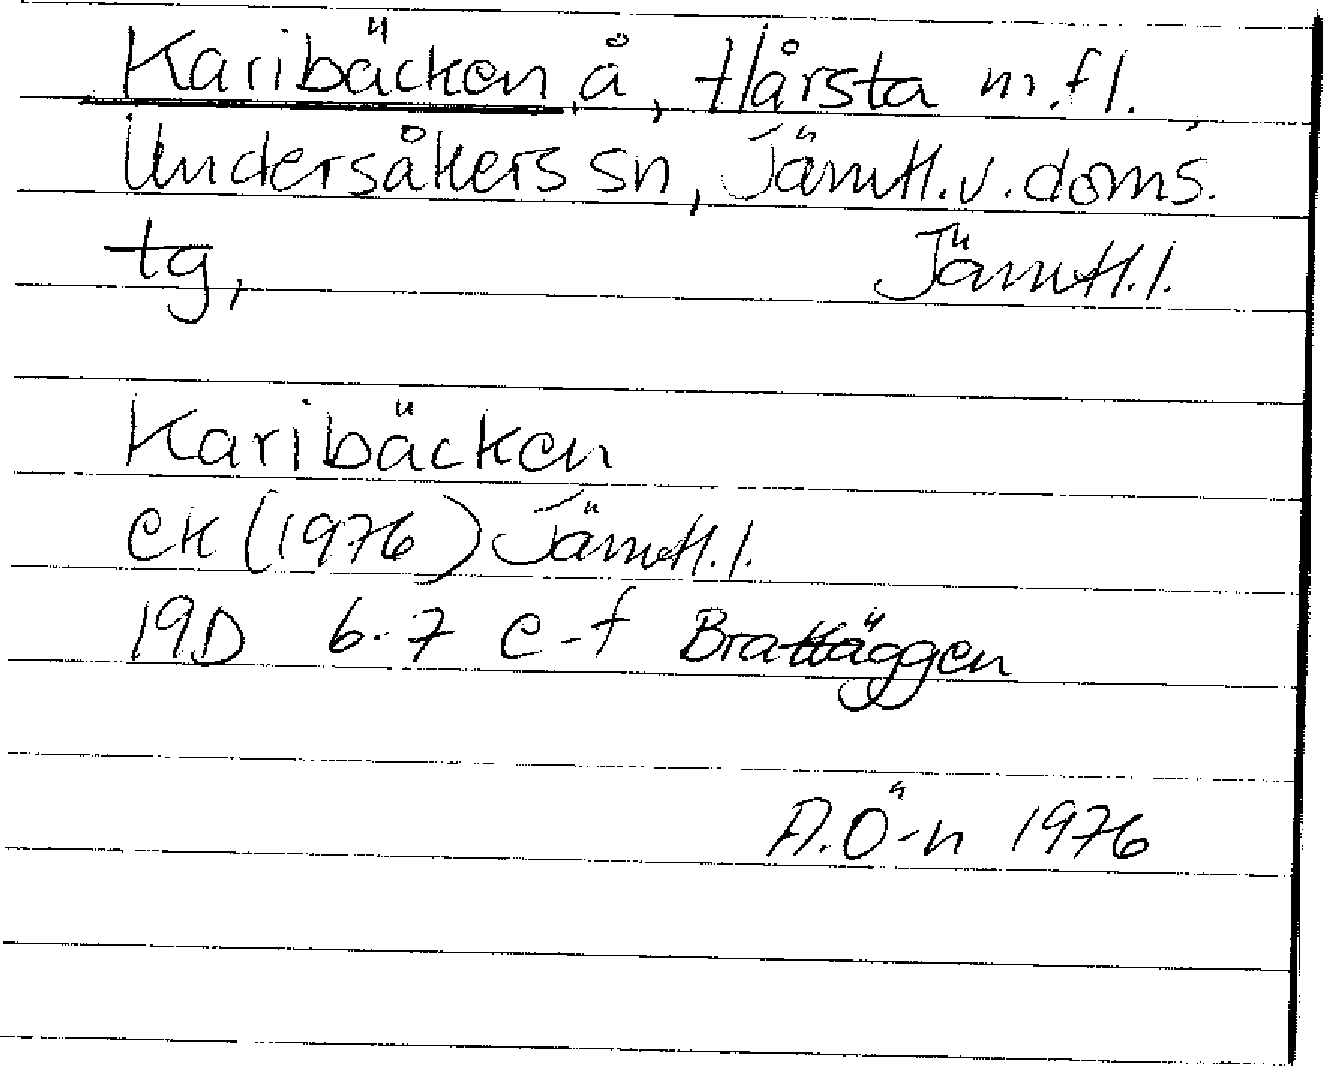 Karibäcken, å, Hårsta m.fl.,
Undersåkers sn, Jämtl.v.doms.
tg, Jämtl.l.
Karibäcken
EK (1976) Jämtl.l.
19D 6-7 e-f Brattäggen
A.Ö-n 1976